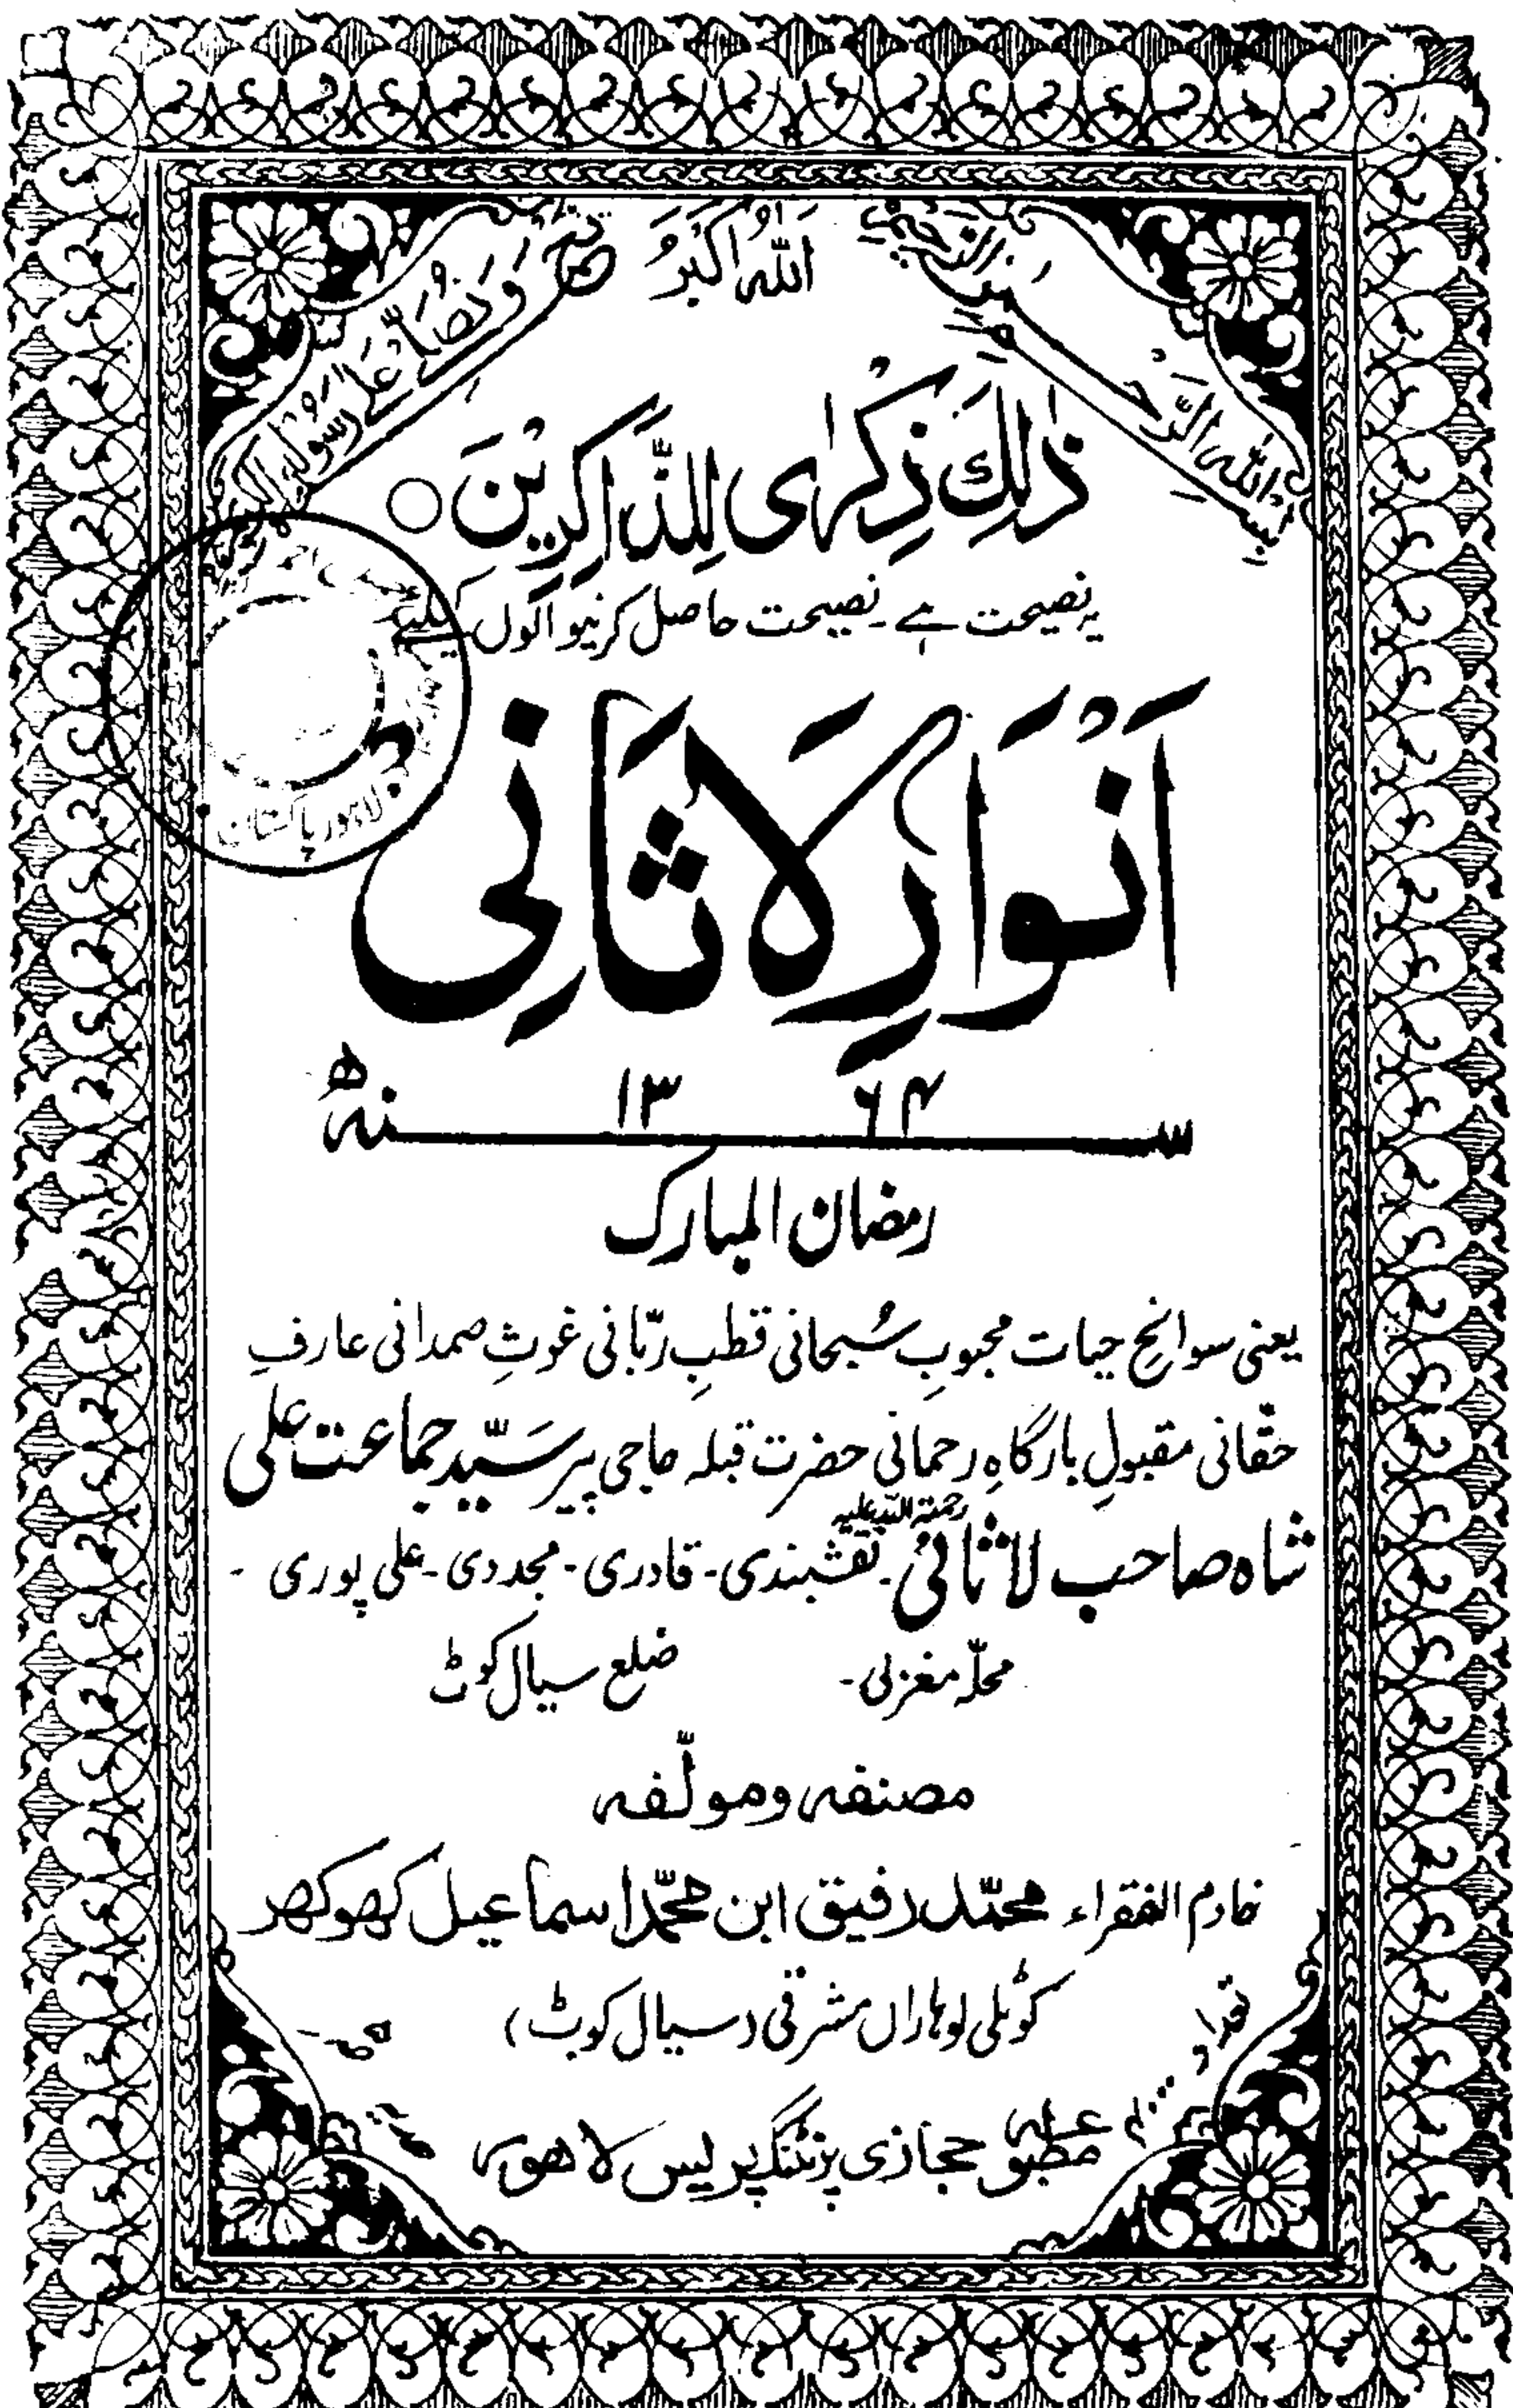 بسم الله الرحمن الرحيم
اَللّٰهُ اَكْبَرُ
نحمده وَنُصَلِّی عَلٰی رَسُوْلِهِ الکریم
ذٰلِكَ ذِكْرٰی لِلذَّاكِرِیْنَ ○
یہ نصیحت ہے نصیحت حاصل کرنیوالوں کیلئے
اَنْوَارِ لَاثَانِی
سنہ ۱۳۶۴ ھ
رمضان المبارک
یعنی سوانحِ حیات محبوبِ سُبحانی قطبِ ربّانی غوثِ صمدانی عارفِ
حقّانی مقبولِ بارگاہِ رحمانی حضرت قبلہ حاجی پیر سَیّد جماعت علی
شاہ صاحب لاثانی رحمتہ اللہ علیہ ۔ نقشبندی ۔ قادری ۔ مجددی ۔ علی پوری ۔
محلّہ مغربی ۔ ضلع سیال کوٹ
مصنفہ و مولّفہ
خادم الفقراء محمّد رفیق ابن محمّد اسماعیل کھوکھر
کوٹلی لوہاراں مشرقی (سیال کوٹ)
تعداد
مطبوعہ حجازی پرنٹنگ پریس لاہور
لاہور پاکستان